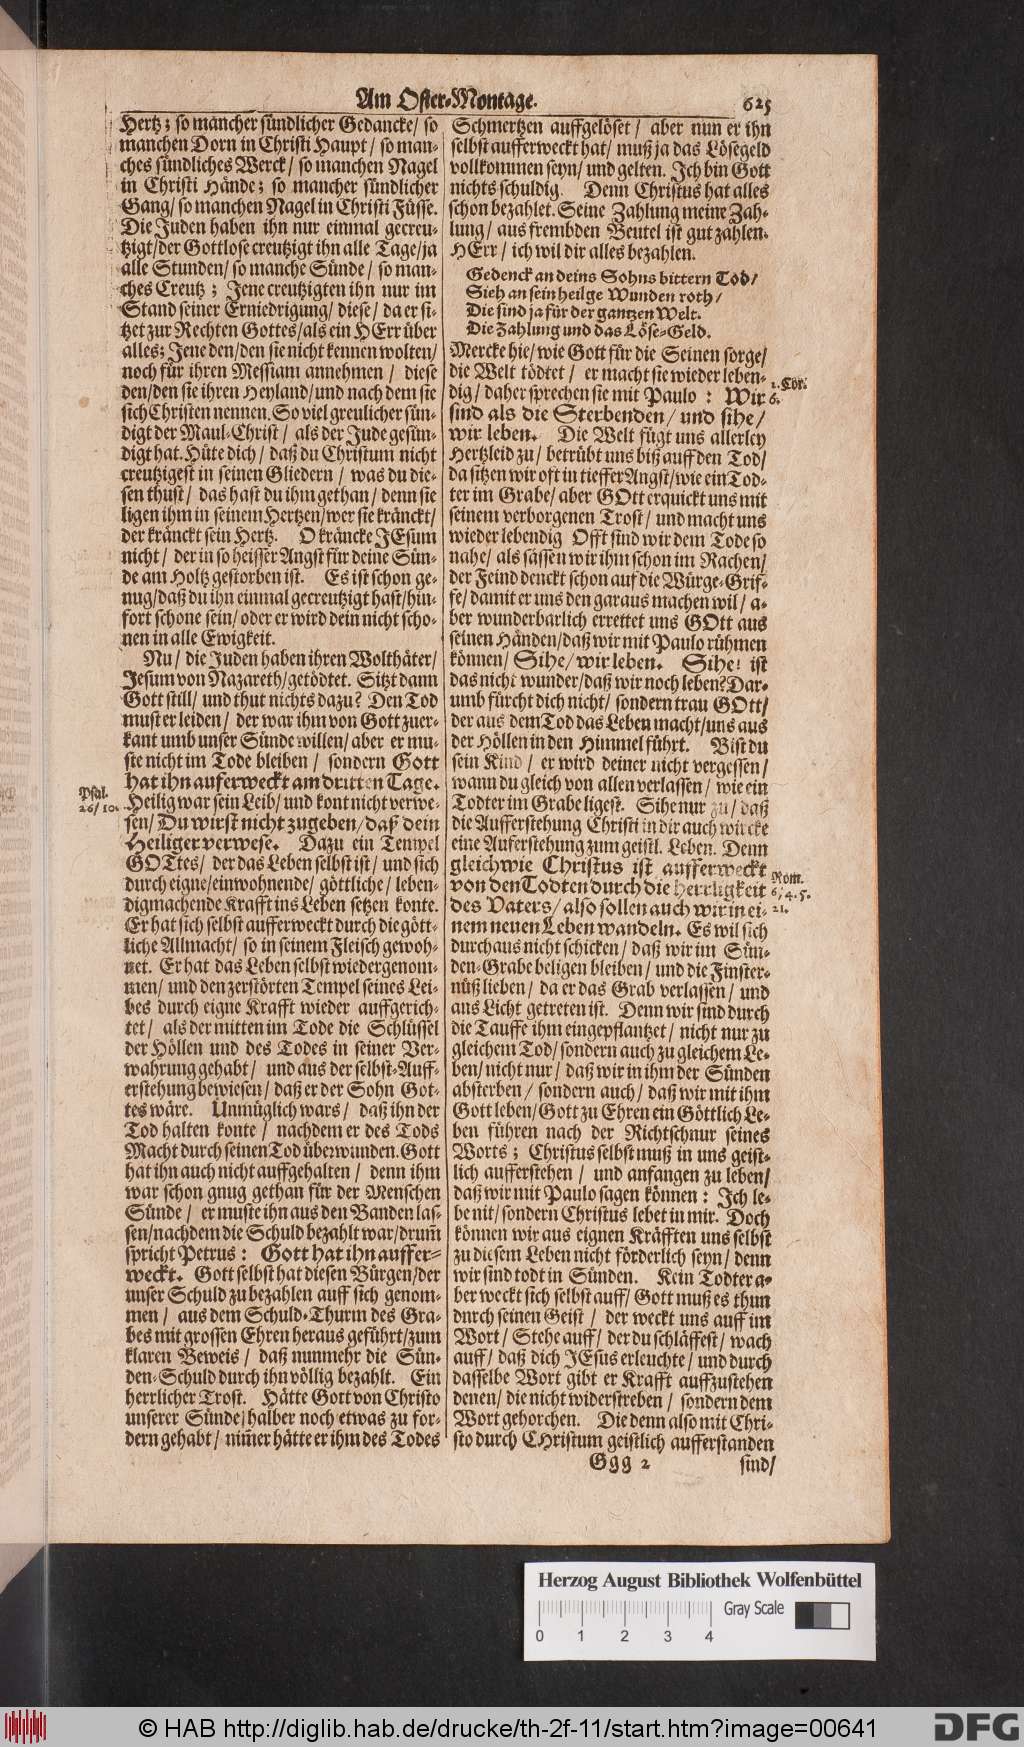 Am Oster-Montage.
625
Hertz; so mancher sündlicher Gedancke/ so
manchen Dorn in Christi Haupt/ so man-
ches sündliches Werck/ so manchen Nagel
in Christi Hände; so mancher sündlicher
Gang/ so manchen Nagel in Christi Füsse.
Die Juden haben ihn nur einmal gecreu-
tzigt/ der Gottlose creutzigt ihn alle Tage/ ja
alle Stunden/ so manche Sünde/ so man-
ches Creutz; Jene creutzigten ihn nur im
Stand seiner Erniedrigung/ diese/ da er si-
tzet zur Rechten Gottes/ als ein HErr über
alles; Jene den/ den sie nicht kennen wolten/
noch für ihren Messiam annehmen/ diese
den/ den sie ihren Heyland/ und nach dem sie
sich Christen nennen. So viel greulicher sün-
digt der Maul-Christ/ als der Jude gesün-
digt hat. Hüte dich/ daß du Christum nicht
creutzigest in seinen Gliedern/ was du die-
sen thust/ das hast du ihm gethan/ denn sie
ligen ihm in seinem Hertzen/ wer sie kränckt/
der kränckt sein Hertz. O kräncke JEsum
nicht/ der in so heisser Angst für deine Sün-
de am Holtz gestorben ist. Es ist schon ge-
nug/ daß du ihn einmal gecreutzigt hast/ hin-
fort schone sein/ oder er wird dein nicht scho-
nen in alle Ewigkeit.
Nu/ die Juden haben ihren Wolthäter/
Jesum von Nazareth/ getödtet. Sitzt dann
Gott still/ und thut nichts dazu? Den Tod
must er leiden/ der war ihm von Gott zuer-
kant umb unser Sünde willen/ aber er mu-
ste nicht im Tode bleiben/ sondern Gott
hat ihn auferweckt am dritten Tage.
Psal.
26/10.
Heilig war sein Leib/ und kont nicht verwe-
sen/ Du wirst nicht zugeben/ daß dein
Heiliger verwese. Dazu ein Tempel
GOTtes/ der das Leben selbst ist/ und sich
durch eigne/ einwohnende/ göttliche/ leben-
digmachende Krafft ins Leben setzen konte.
Er hat sich selbst aufferweckt durch die gött-
liche Allmacht/ so in seinem Fleisch gewoh-
net. Er hat das Leben selbst wiedergenom-
men/ und den zerstörten Tempel seines Lei-
bes durch eigne Krafft wieder auffgerich-
tet/ als der mitten im Tode die Schlüssel
der Höllen und des Todes in seiner Ver-
wahrung gehabt/ und aus der selbst-Auff-
erstehung bewiesen/ daß er der Sohn Got-
tes wäre. Unmüglich wars/ daß ihn der
Tod halten konte/ nachdem er des Tods
Macht durch seinen Tod überwunden. Gott
hat ihn auch nicht auffgehalten/ denn ihm
war schon gnug gethan für der Menschen
Sünde/ er muste ihn aus den Banden las-
sen/ nachdem die Schuld bezahlt war/ drum̃
spricht Petrus: Gott hat ihn auffer-
weckt. Gott selbst hat diesen Bürgen/ der
unser Schuld zu bezahlen auff sich genom-
men/ aus dem Schuld-Thurm des Gra-
bes mit grossen Ehren heraus geführt/ zum
klaren Beweis/ daß nunmehr die Sün-
den-Schuld durch ihn völlig bezahlt. Ein
herrlicher Trost. Hätte Gott von Christo
unserer Sünde halber noch etwas zu for-
dern gehabt/ nim̃er hätte er ihm des Todes
Schmertzen auffgelöset/ aber nun er ihn
selbst aufferweckt hat/ muß ja das Lösegeld
vollkommen seyn/ und gelten. Ich bin Gott
nichts schuldig. Denn Christus hat alles
schon bezahlet. Seine Zahlung meine Zah-
lung/ aus frembden Beutel ist gut zahlen.
HErr/ ich wil dir alles bezahlen.
Gedenck an deins Sohns bittern Tod/
Sieh an sein heilge Wunden roth/
Die sind ja für der gantzen Welt.
Die Zahlung und das Löse-Geld.
Mercke hie/ wie Gott für die Seinen sorge/
die Welt tödtet/ er macht sie wieder leben-
dig/ daher sprechen sie mit Paulo: Wir
1. Cor.
6.
sind als die Sterbenden/ und sihe/
wir leben. Die Welt fügt uns allerley
Hertzleid zu/ betrübt uns biß auff den Tod/
da sitzen wir oft in tieffer Angst/ wie ein Tod-
ter im Grabe/ aber GOtt erquickt uns mit
seinem verborgenen Trost/ und macht uns
wieder lebendig Offt sind wir dem Tode so
nahe/ als sässen wir ihm schon im Rachen/
der Feind denckt schon auf die Würge-Grif-
fe/ damit er uns den garaus machen wil/ a-
ber wunderbarlich errettet uns GOtt aus
seinen Händen/ daß wir mit Paulo rühmen
können/ Sihe/ wir leben. Sihe! ist
das nicht wunder/ daß wir noch leben? Dar-
umb fürcht dich nicht/ sondern trau GOtt/
der aus dem Tod das Leben macht/ uns aus
der Höllen in den Himmel führt. Bist du
sein Kind/ er wird deiner nicht vergessen/
wann du gleich von allen verlassen/ wie ein
Todter im Grabe ligest. Sihe nur zu/ daß
die Aufferstehung Christi in dir auch wircke
eine Auferstehung zum geistl. Leben. Denn
gleichwie Christus ist aufferweckt
von den Todten durch die Herrligkeit
Rom.
6/4.5.
21.
des Vaters/ also sollen auch wir in ei-
nem neuen Leben wandeln. Es wil sich
durchaus nicht schicken/ daß wir im Sün-
den-Grabe beligen bleiben/ und die Finster-
nüß lieben/ da er das Grab verlassen/ und
ans Licht getreten ist. Denn wir sind durch
die Tauffe ihm eingepflantzet/ nicht nur zu
gleichem Tod/ sondern auch zu gleichem Le-
ben/ nicht nur/ daß wir in ihm der Sünden
absterben/ sondern auch/ daß wir mit ihm
Gott leben/ Gott zu Ehren ein Göttlich Le-
ben führen nach der Richtschnur seines
Worts; Christus selbst muß in uns geist-
lich aufferstehen/ und anfangen zu leben/
daß wir mit Paulo sagen können: Ich le-
be nit/ sondern Christus lebet in mir. Doch
können wir aus eignen Kräfften uns selbst
zu diesem Leben nicht förderlich seyn/ denn
wir sind todt in Sünden. Kein Todter a-
ber weckt sich selbst auff/ Gott muß es thun
durch seinen Geist/ der weckt uns auff im
Wort/ Stehe auff/ der du schläffest/ wach
auff/ daß dich JEsus erleuchte/ und durch
dasselbe Wort gibt er Krafft auffzustehen
denen/ die nicht widerstreben/ sondern dem
Wort gehorchen. Die denn also mit Chri-
sto durch CHristum geistlich aufferstanden
Ggg 2
sind/
Herzog August Bibliothek Wolfenbüttel
Gray Scale
0 1 2 3 4
© HAB http://diglib.hab.de/drucke/th-2f-11/start.htm?image=00641
DFG